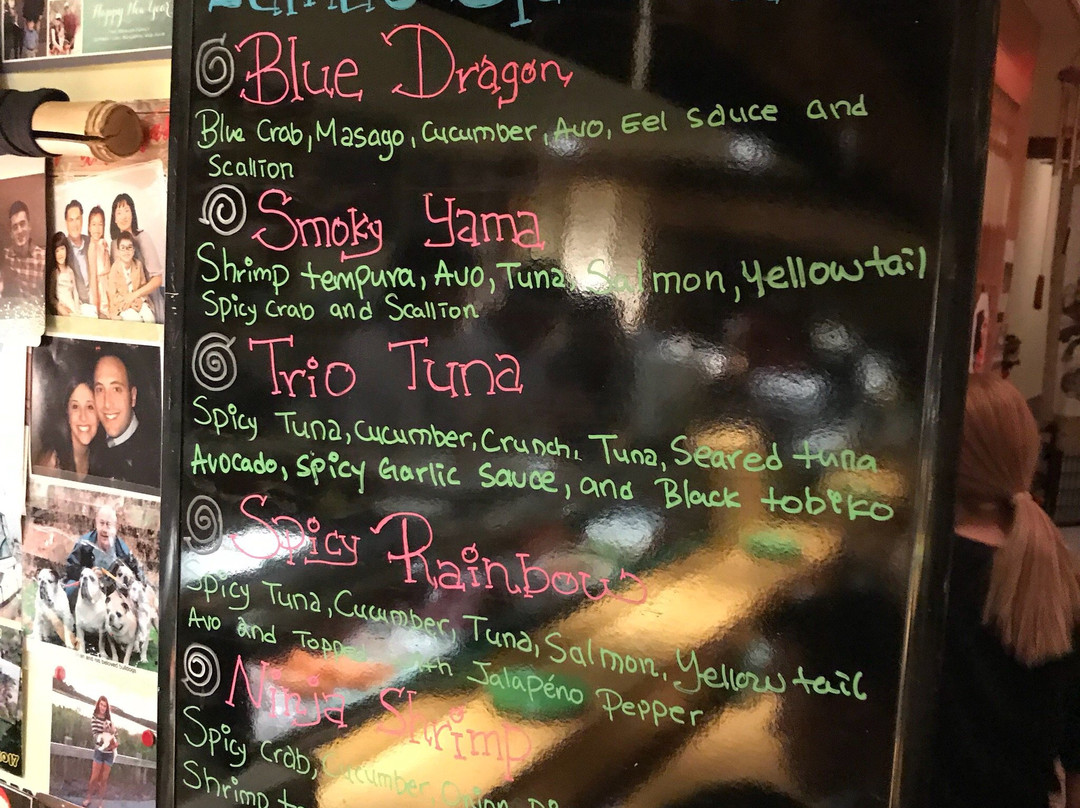 Happy New Year
Blue Dragon
Blue Crab, Masago, Cucumber, Avo, Eel sauce and
Scallion
Smoky Yama
Shrimp tempura, Avo, Tuna Salmon, yellowtail
Spicy Crab and Scallion
Trio Tuna
Spicy Tuna, Cucumber, Crunch, Tuna, Seared tuna
Avocado, spicy Garlic Sauce, and Black tobiko
Spicy Rainbow
Spicy Tuna, Cucumber, Tuna, Salmon, Yellowtail
Avo and Topped with Jalapéno Pepper
Ninja Shrimp
Spicy Crab, Cucumber, Onion
Shrimp